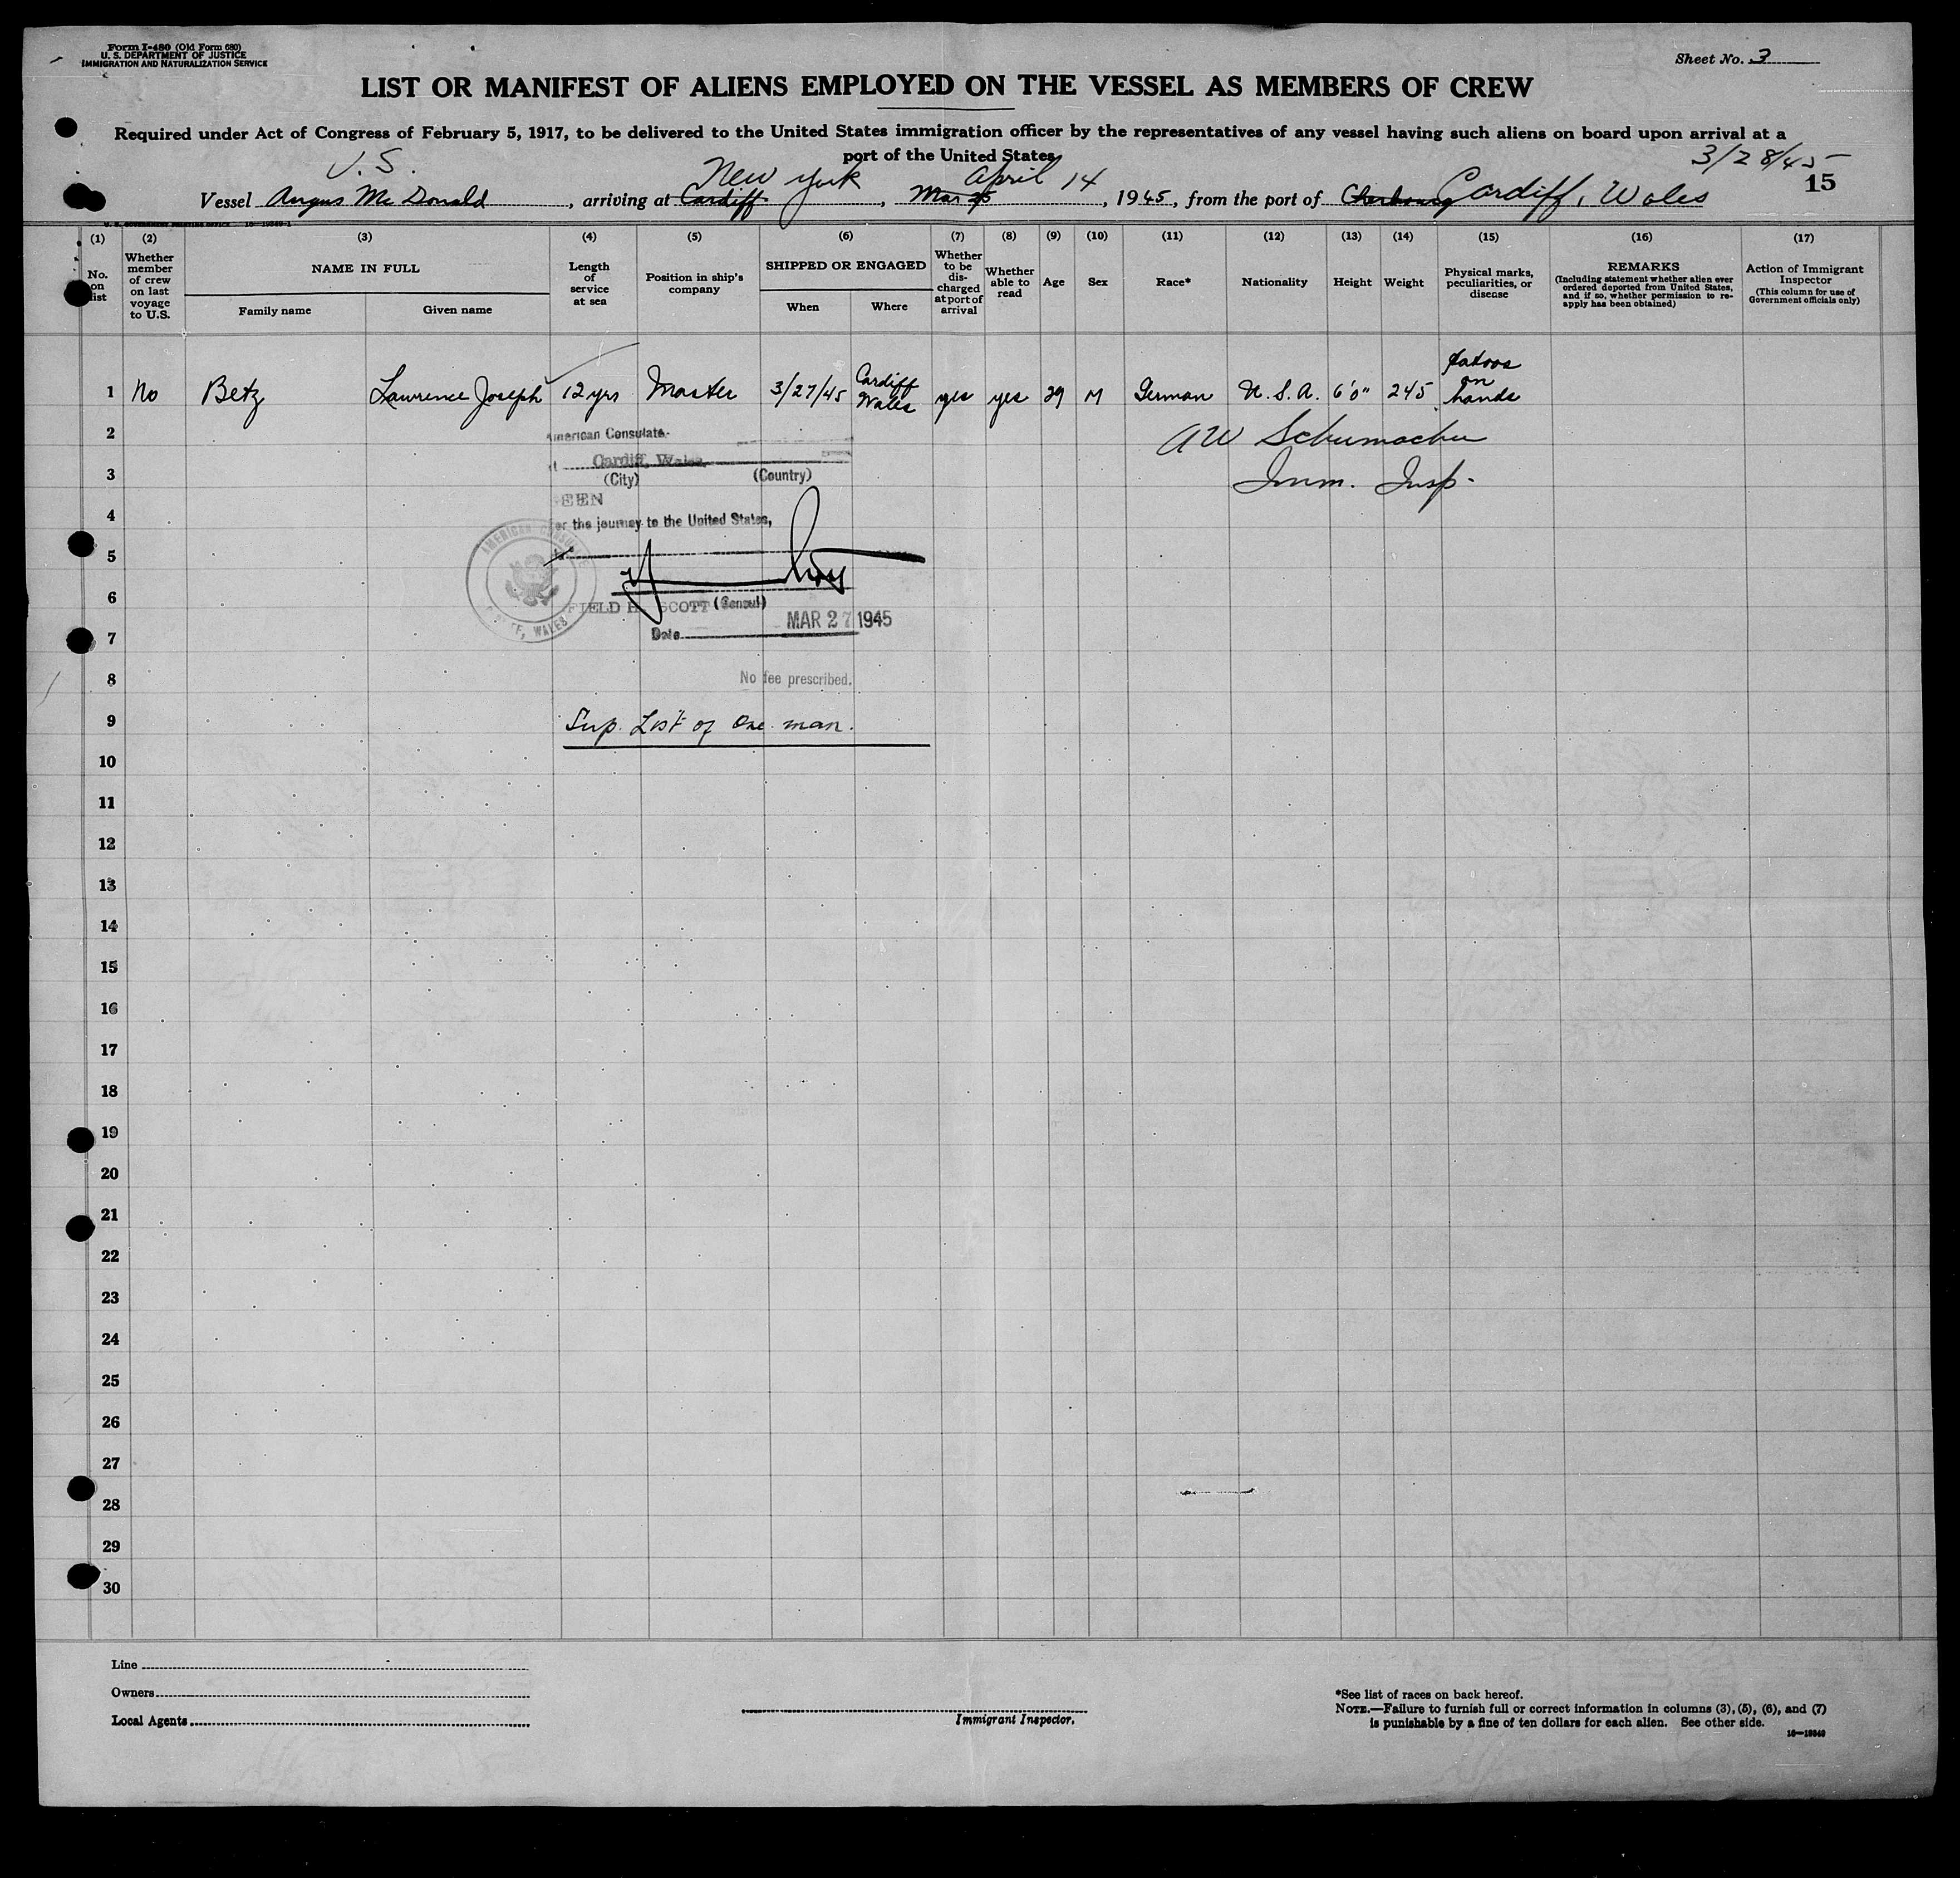 Form I-480 (Old Form 680)
U. S. DEPARTMENT OF JUSTICE
IMMIGRATION AND NATURALIZATION SERVICE
Sheet No. 3
LIST OR MANIFEST OF ALIENS EMPLOYED ON THE VESSEL AS MEMBERS OF CREW
Required under Act of Congress of February 5, 1917, to be delivered to the United States immigration officer by the representatives of any vessel having such aliens on board upon arrival at a
port of the United States
3/28/45
15
U.S. New York April 14
Vessel Angus Mc Donald, arriving at Cardiff, Mar 25, 1945, from the port of Cherbourg Cardiff, Wales
(1) (2) (3) (4) (5) (6) (7) (8) (9) (10) (11) (12) (13) (14) (15) (16) (17)
No. on list
Whether member of crew on last voyage to U.S.
NAME IN FULL
Family name
Given name
Length of service at sea
Position in ship's company
SHIPPED OR ENGAGED
When
Where
Whether to be discharged at port of arrival
Whether able to read
Age
Sex
Race*
Nationality
Height
Weight
Physical marks, peculiarities, or disease
REMARKS
(Including statement whether alien ever ordered deported from United States, and if so, whether permission to reapply has been obtained)
Action of Immigrant Inspector
(This column for use of Government officials only)
1 No Betz Lawrence Joseph 12 yrs Master 3/27/45 Cardiff Wales yes yes 39 M German U.S.A. 6'0" 245 tatoos on hands
2
AW Schumacher
Imm. Insp.
American Consulate
Cardiff, Wales
3
(City) (Country)
SEEN
4
for the journey to the United States,
5
6
FIELD H. SCOTT (Consul)
AMERICAN CONSULATE
CARDIFF, WALES
Date MAR 27 1945
7
No fee prescribed.
8
9
Sup. List of One man.
10
11
12
13
14
15
16
17
18
19
20
21
22
23
24
25
26
27
28
29
30
Line
Owners
Local Agents
Immigrant Inspector.
*See list of races on back hereof.
NOTE.—Failure to furnish full or correct information in columns (3), (5), (6), and (7)
is punishable by a fine of ten dollars for each alien. See other side.